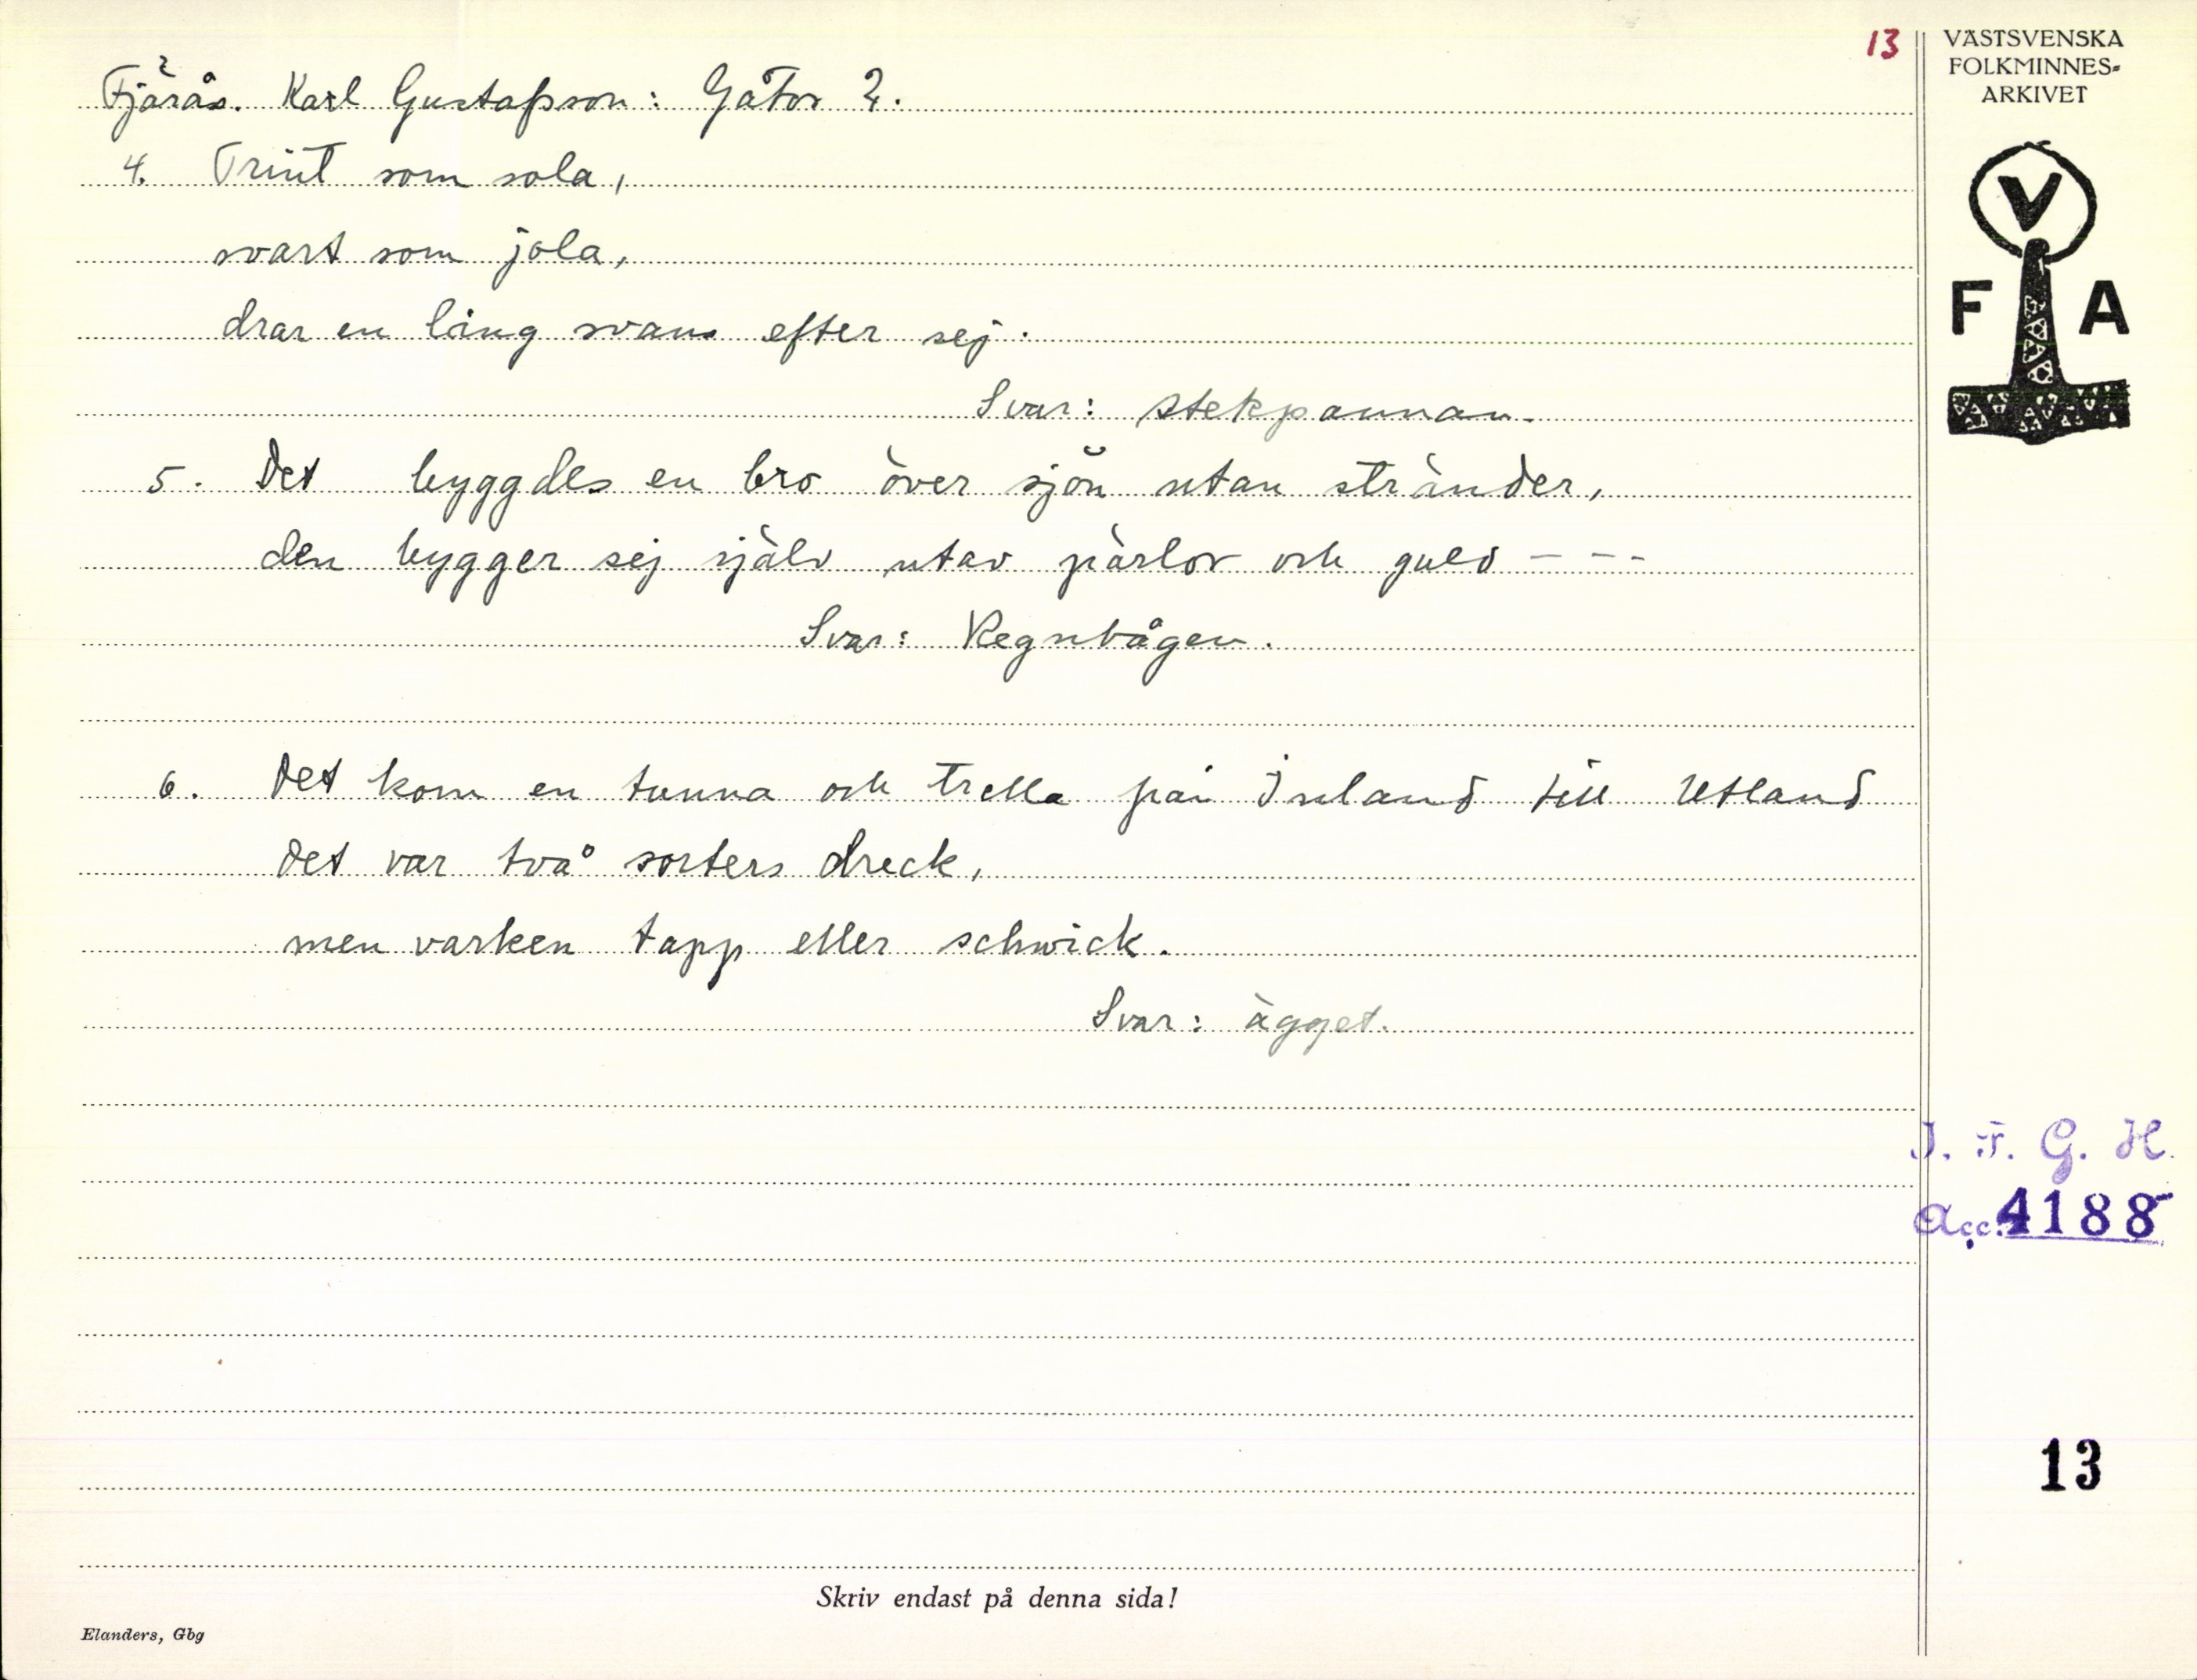 13
VÄSTSVENSKA
FOLKMINNES-
ARKIVET
V
F A
Fjärås. Karl Gustafsson: Gåtor 2.
4. Trint som sola,
svart som jola,
drar en lång svans efter sej.
Svar: stekpannan.
5. Det byggdes en bro över sjön utan stränder,
den bygger sej själv utav pärlor och guld - - -
Svar: Regnbågen.
6. Det kom en tunna och trella från Inland till Utland
det var två sorters dreck,
men varken tapp eller schwick.
Svar: ägget.
I. F. G. H.
Acc. 4188
13
Skriv endast på denna sida!
Elanders, Gbg